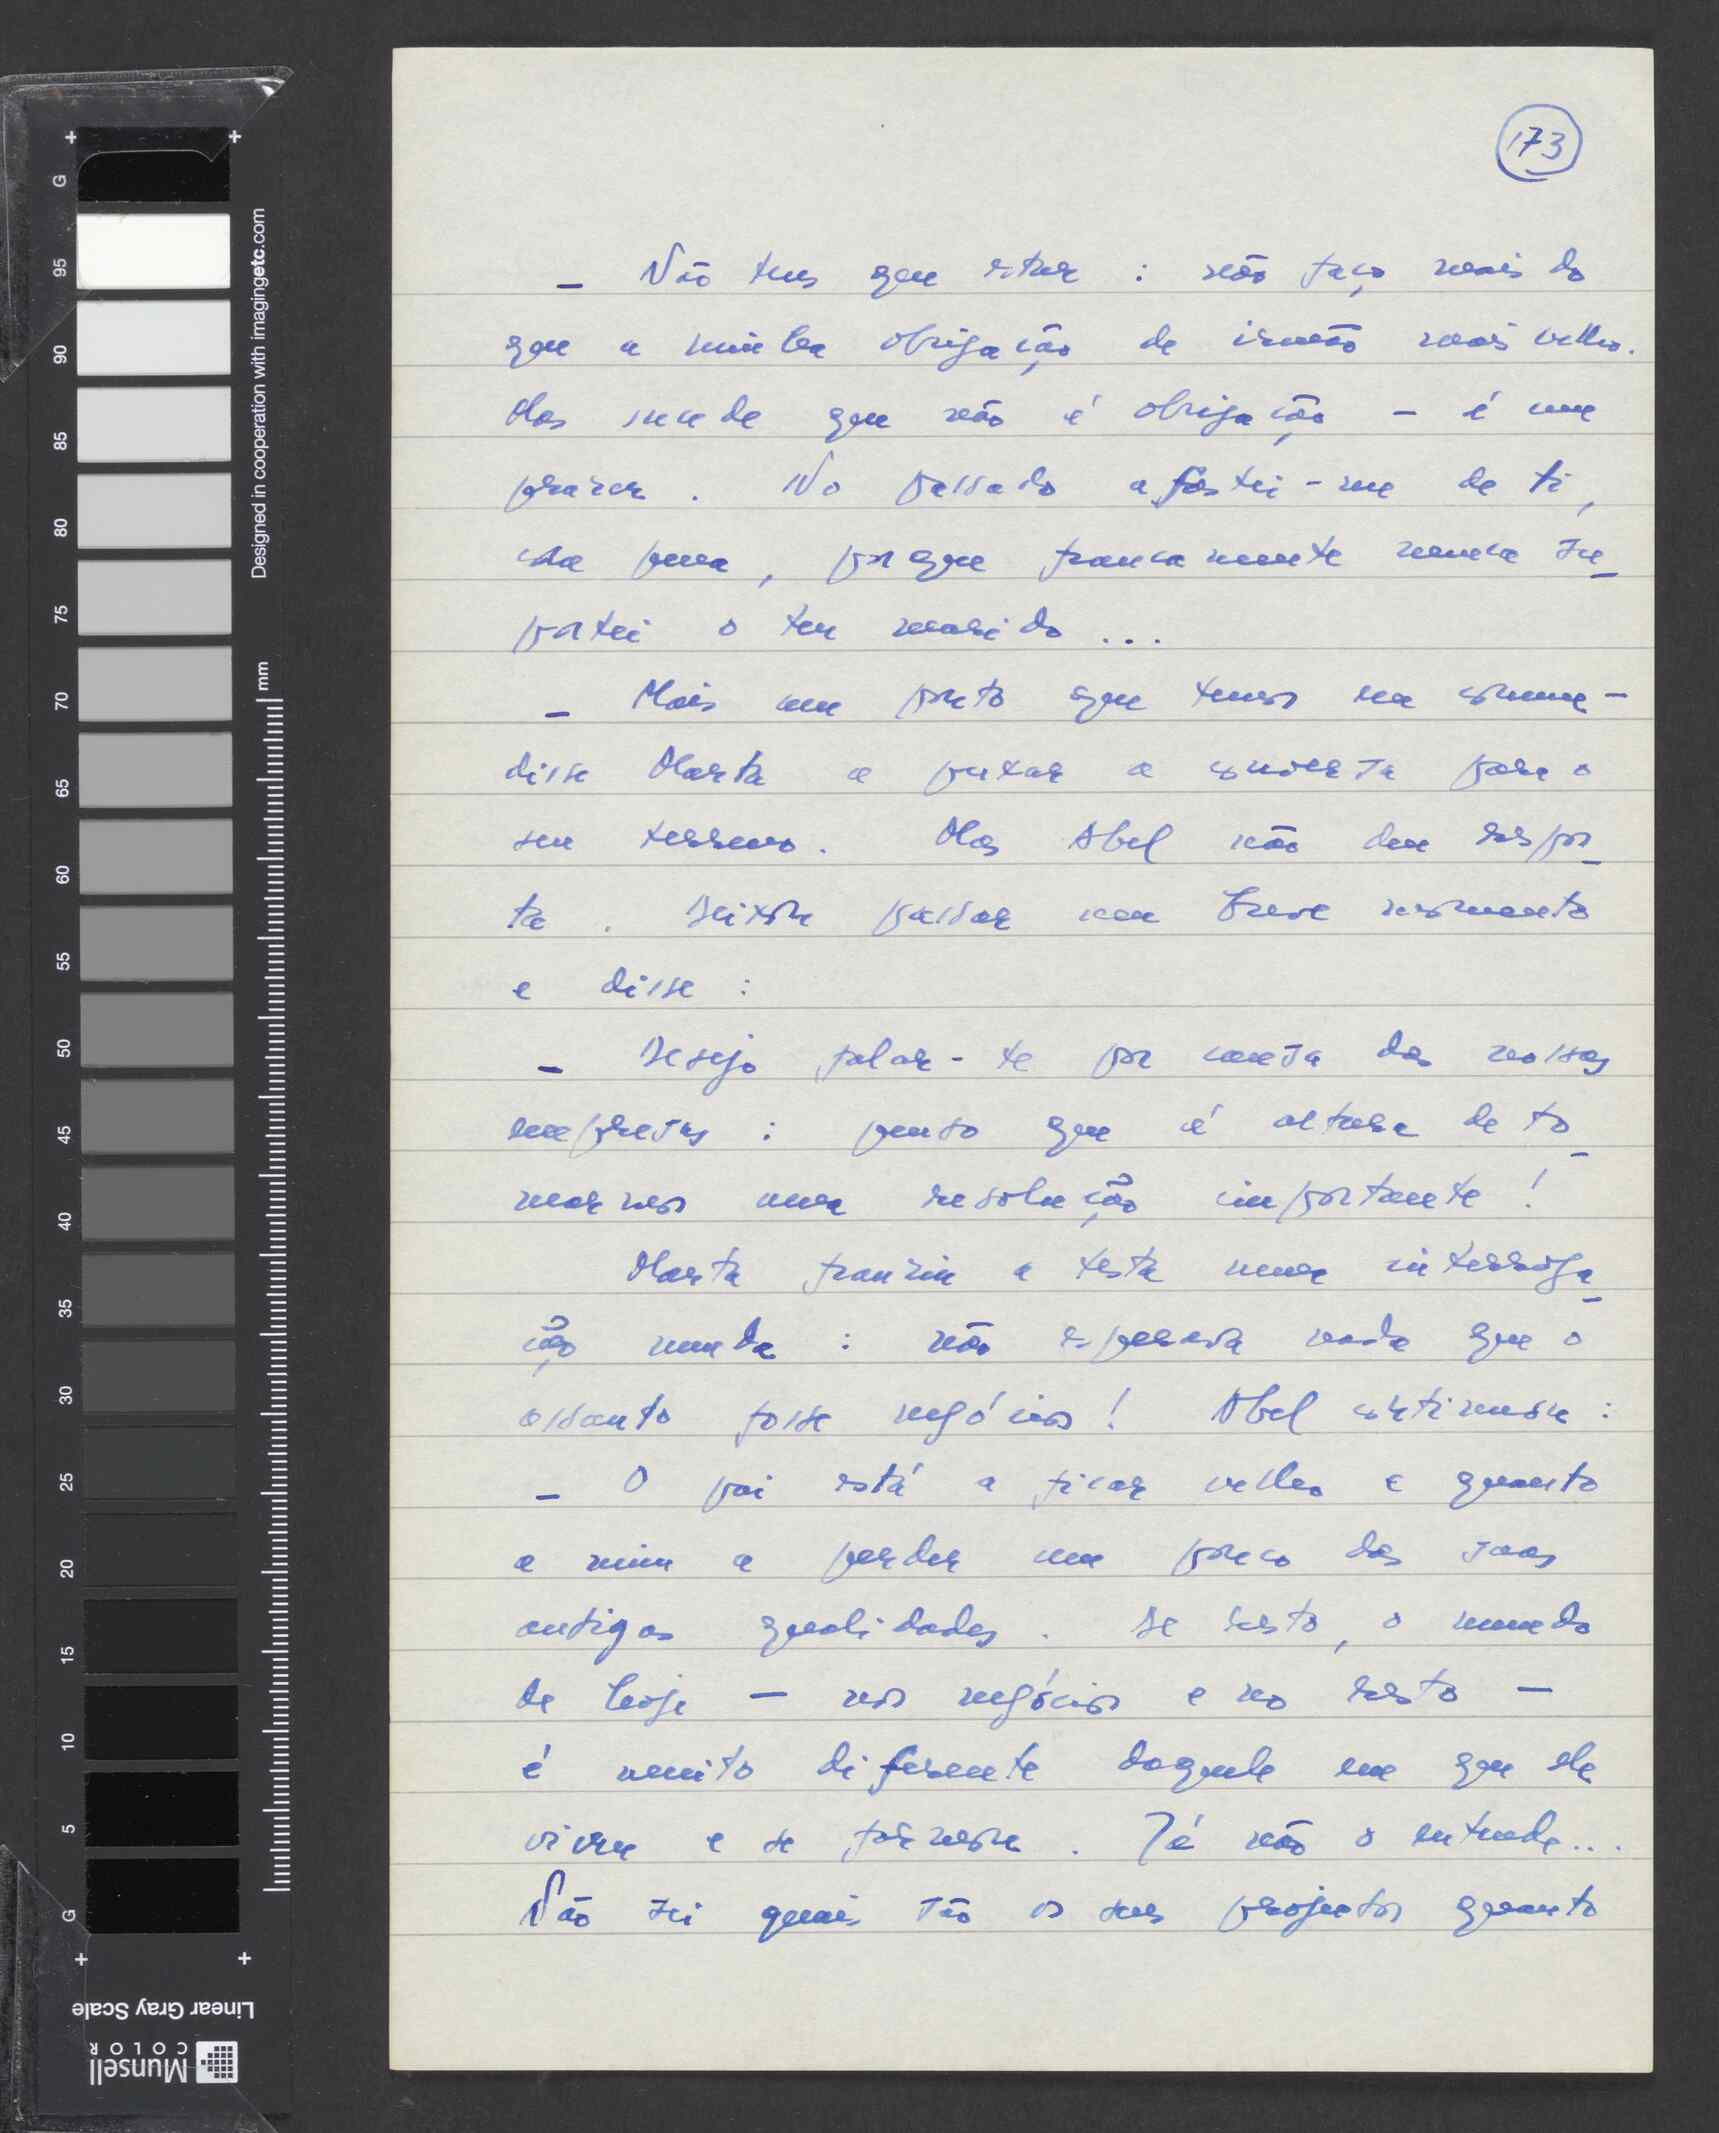 173
– Não tens que estar : não faço mais do
que a minha obrigação de irmão mais velho.
Mas sucede que não é obrigação – é um
prazer . No passado afastei-me de ti,
com pena, porque francamente nunca su-
portei o teu marido ...
– Mais um ponto que temos em comum –
disse Marta a puxar a conversa para o
seu terreno. Mas Abel não deu respos-
ta . Deixou passar um breve momento
e disse :
– Desejo falar-te por causa das nossas
empresas : penso que é altura de to-
marmos uma resolução importante !
Marta franziu a testa numa interroga-
ção muda : não esperava nada que o
assunto fosse negócios ! Abel continuou :
– O pai está a ficar velho e quanto
a mim a perder um pouco das suas
antigas qualidades . De resto, o mundo
de hoje – nos negócios e no resto –
é muito diferente daquele em que ele
viveu e se formou . Já não o entende...
Não sei quais são os seus projectos quanto
G
95
90
85
80
75
70
65
60
55
50
45
40
35
30
25
20
15
10
5
G
Designed in cooperation with imagingetc.com
mm
Linear Gray Scale
Munsell
COLOR